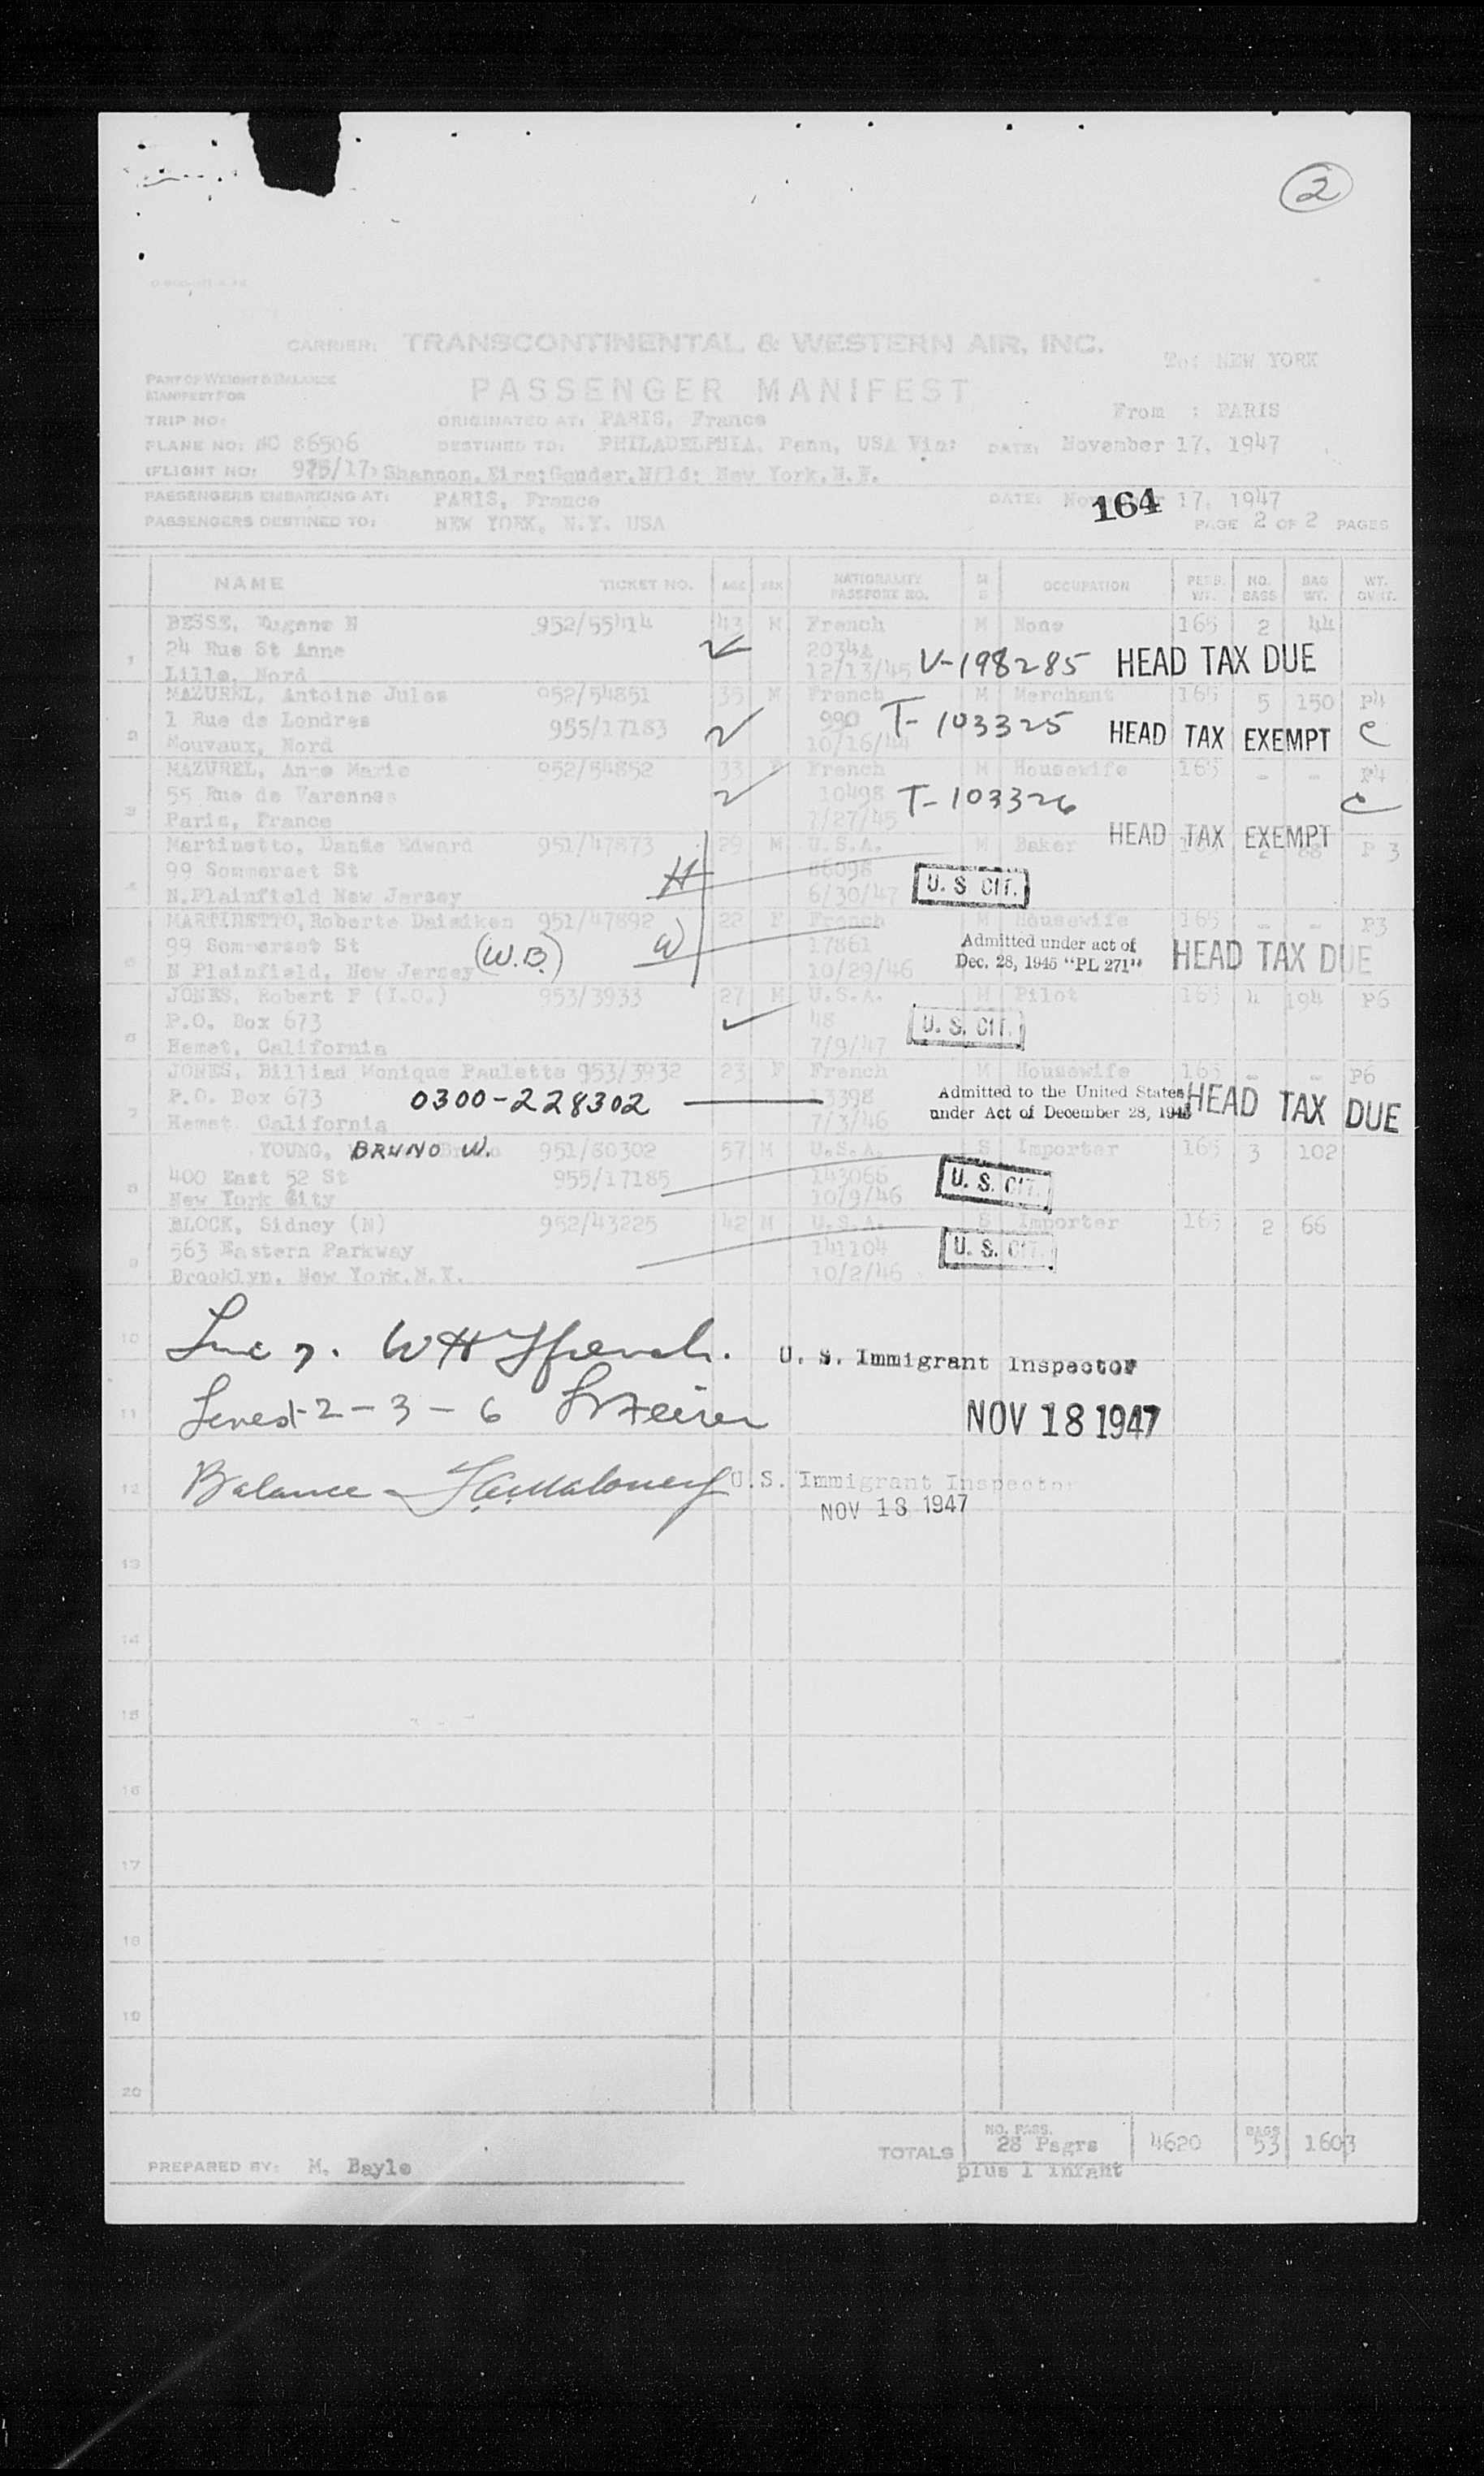 2
CARRIER: TRANSCONTINENTAL & WESTERN AIR, INC.
To: NEW YORK
PART OF WEIGHT & BALANCE
MANIFEST FOR
PASSENGER MANIFEST
From : PARIS
TRIP NO:
ORIGINATED AT: PARIS, France
PLANE NO: NC 86506
DESTINED TO: PHILADELPHIA, Penn, USA Via:
DATE: November 17, 1947
(FLIGHT NO: 975/17) Shannon, Eire; Gander, Nfld; New York, N.Y.
PASSENGERS EMBARKING AT: PARIS, France
DATE: November 17, 1947
164
PASSENGERS DESTINED TO: NEW YORK, N.Y. USA
PAGE 2 OF 2 PAGES
NAME TICKET NO. AGE SEX NATIONALITY PASSPORT NO. M S OCCUPATION PERS. WT. NO. BAGS BAG WT. WT. OVRT.
BESSE, Eugene N 952/55414 43 M French M None 165 2 44
24 Rue St Anne
1 Lille, Nord 12/13/45 V-198285 HEAD TAX DUE
MAZUREL, Antoine Jules 952/54851 35 M French M Merchant 165 5 150 P4
2 1 Rue de Londres 955/17183 990 T-103325 HEAD TAX EXEMPT C
Mouvaux, Nord 10/16/44
MAZUREL, Anne Marie 952/54852 33 F French M Housewife 165 - - P4
55 Rue de Varennes 10498 T-103326 C
3 Paris, France 7/27/45 HEAD TAX EXEMPT
Martinetto, Edward 951/47873 29 M U.S.A. M Baker 2 88 P 3
99 Sommerset St 86098
4 N.Plainfield New Jersey H 6/30/47 U. S CIT.
MARTINETTO, Roberte Daisiken 951/47892 22 F French M Housewife 165 - - P3
99 Sommerset St (W.B.) W 17861 Admitted under act of HEAD TAX DUE
5 N Plainfield, New Jersey 10/29/46 Dec. 28, 1945 "PL 271"
JONES, Robert F (I.O.) 953/3933 27 M U.S.A. M Pilot 165 4 194 P6
P.O. Box 673 48 U. S. CIT.
6 Hemet, California 7/9/47
JONES, Billiad Monique Paulette 953/3932 23 F French M Housewife 165 - - P6
P.O. Box 673 0300-228302 13398 Admitted to the United States HEAD TAX DUE
7 Hemet, California 7/3/46 under Act of December 28, 1945
YOUNG, BRUNO W. 951/80302 57 M U.S.A. S Importer 165 3 102
400 East 52 St 955/17185 143066 U. S. CIT.
8 New York City 10/9/46
BLOCK, Sidney (N) 952/43225 42 M U.S.A. S Importer 165 2 66
563 Eastern Parkway 141104 U. S. CIT.
9 Brooklyn, New York, N.Y. 10/2/46
10 Line 7. U. S. Immigrant Inspector
11 Lines 2-3-6 NOV 18 1947
12 Balance - U.S. Immigrant Inspector
NOV 18 1947
13
14
15
16
17
18
19
20
TOTALS NO. PASS. 28 Psgrs 4620 BAGS 53 1603
plus 1 infant
PREPARED BY: M. Bayle